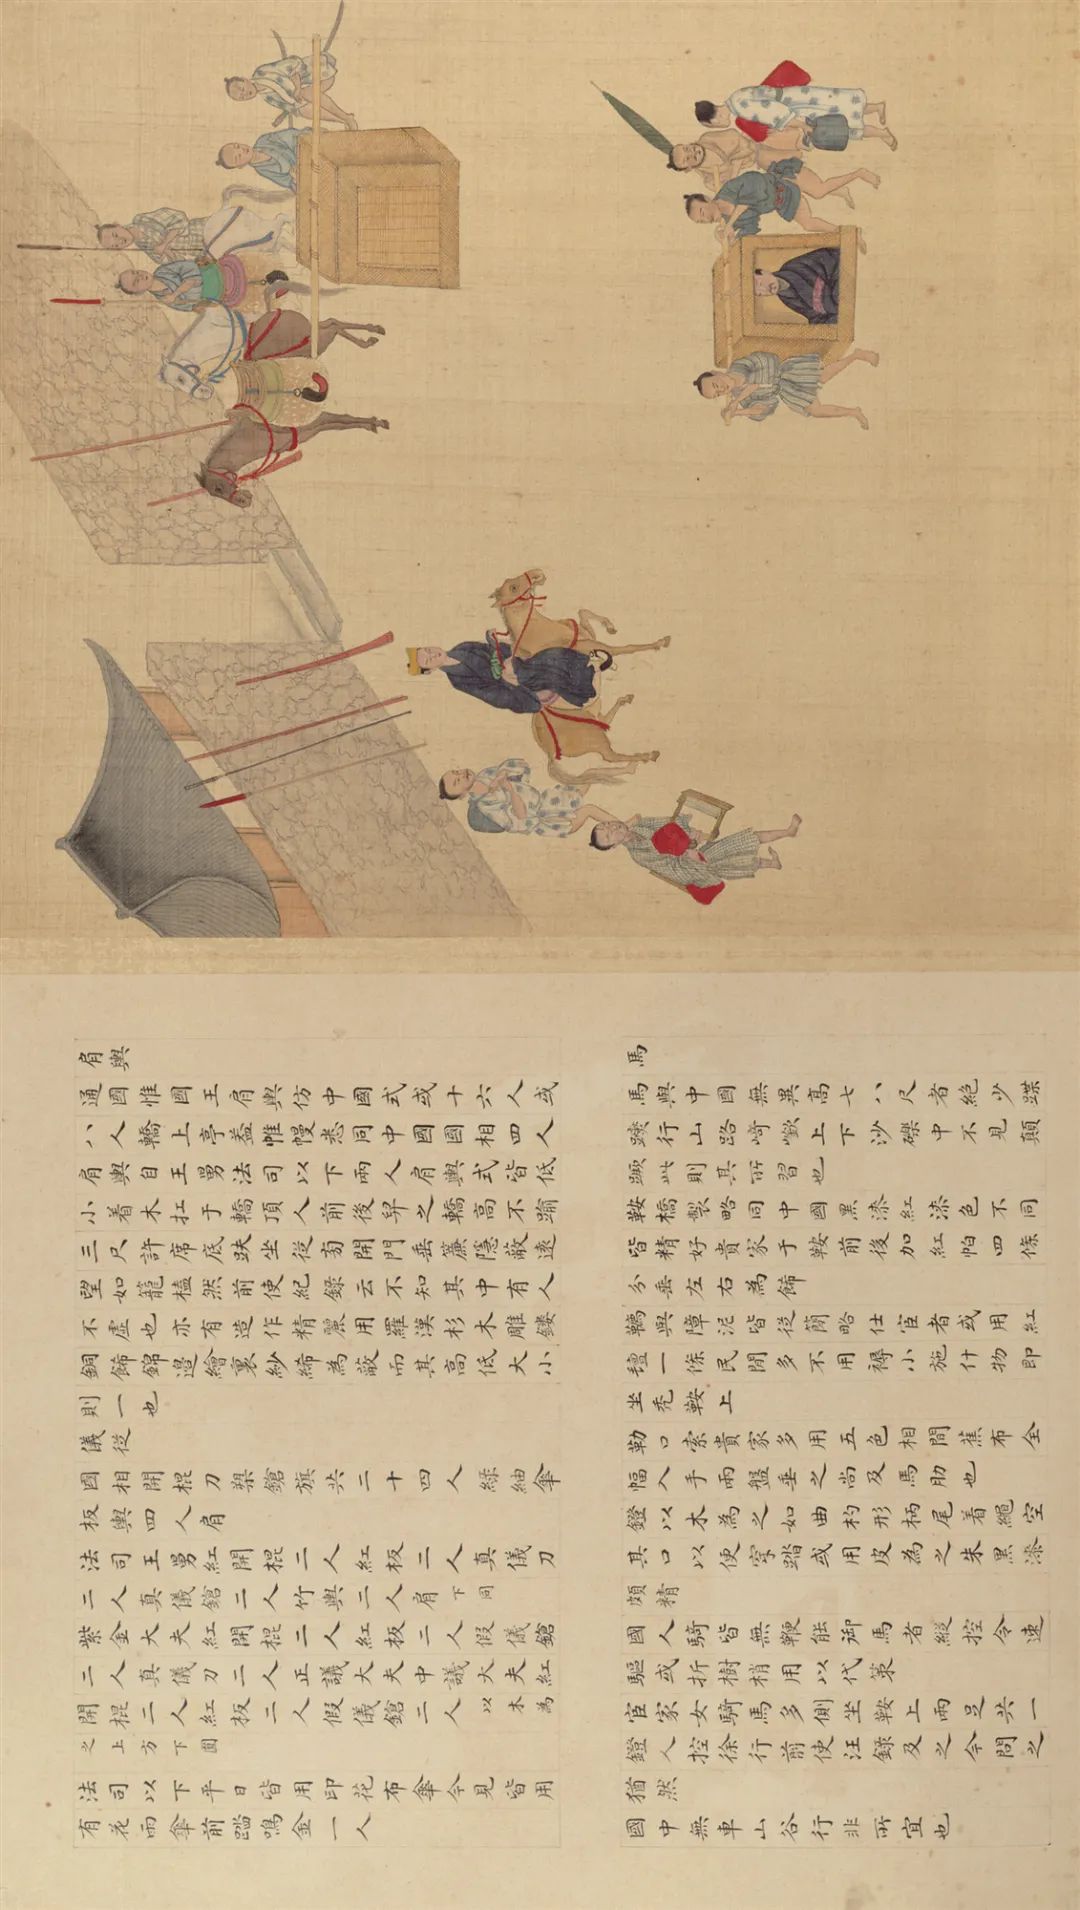 肩輿
通國惟國王肩輿仿中國式或十六人或
八人轎上亭葢帷幔悉同中國國相四人
肩輿自王舅法司以下兩人肩輿式皆低
小着木扛于轎頂人前後舁之轎高不踰
三尺許席底趺坐從旁開門垂簾隱蔽遠
望如籠檻然前使紀錄云不知其中有人
不虛也亦有造作精麗用羅漢杉木雕鏤
銅飾錦邉繪裏紗絺為蔽而其高低大小
則一也
儀從
國相開棍刀槊鎗旗共二十四人綠紬傘
板輿四人肩
法司王舅紅開棍二人紅板二人真儀刀
二人真儀鎗二人竹輿二人肩下同
紫金大夫紅開棍二人紅板二人假儀鎗
二人真儀刀二人正議大夫中議大夫紅
開棍二人紅板二人假儀鎗二人以木為
之上方下圓
法司以下平日皆用印花布傘今見皆用
有花雨傘前踏鳴金一人
馬
馬與中國無異高七八尺者絶少蹀
躞行山路崎嶔上下沙礫中不見顛
蹶此則其所習也
鞍橋製略同中國黑漆紅漆色不同
皆精好貴家于鞍前後加紅帕四條
分垂左右為飾
韉與障泥皆從簡略仕宦者或用紅
氊一條民間多不用褥小施什物即
坐禿鞍上
勒口索貴家多用五色相間蕉布全
幅入手兩盤垂之尚及馬肋也
鐙以木為之如曲杓形柄尾着繩空
其口以便穿踏或用皮為之朱黑漆
頗精
國人騎皆無鞭能御馬者縱控令速
驅或折樹梢用以代策
宦家女騎馬多側坐鞍上兩足共一
鐙人控徐行前使汪錄及之今問之
猶然
國中無車山谷行非所宜也